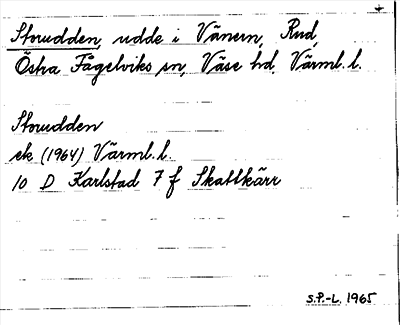 Storudden, udde i Vänern, Rud,
Östra Fågelviks sn, Väse hd, Värml. l.
Storudden
ek (1964) Värml. l.
10 D Karlstad 7 f Skattkärr
S.P.-L. 1965